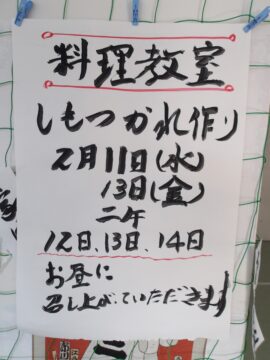 料理教室
しもつかれ作り
2月11日(水)
13日(金)
二午
12日、13日、14日
お昼に
召し上がっていただきます